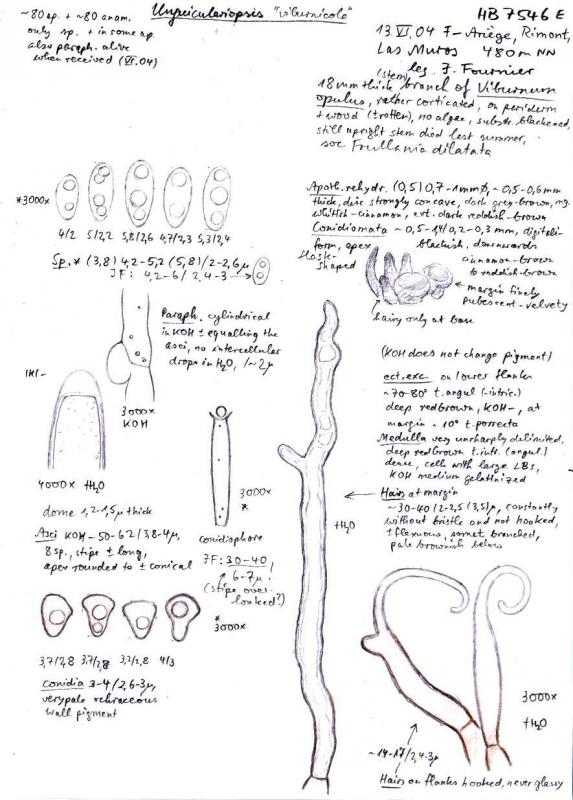 ~80 ap. + ~80 anam.
only sp. + in some ap.
also paraph. alive
when received (VI.04)
Unguiculariopsis "viburnicola"
HB 7546 E
13.VI.04 F-Ariège, Rimont,
Las Muros 480m NN
leg. J. Fournier
(stem)
18mm thick branch of Viburnum
opulus, rather corticated, on periderm
+ wood (±rotten), no algae, substr. blackened,
still upright stem died last summer,
soc. Frullania dilatata
*3000x
4/2 5/2,2 5,8/2,6 4,7/2,3 5,3/2,4
Sp. * (3,8) 4,2-5,2 (5,8)/2-2,6µ
JF: 4,2-6/2,4-3
Apoth. rehydr. (0,5) 0,7-1mmØ, ~0,5-0,6mm
thick, disc strongly concave, dark grey-brown, mg.
whitish-cinnamon, ext. dark reddish-brown
Conidiomata ~0,5-1/0,2-0,3 mm, digitali-
form, apex blackish, downwards
cinnamon-brown
to reddish-brown
flask-
shaped
margin finely
pubescent-velvety
hairy only at base
Paraph. cylindrical
in KOH ± equalling the
asci, no intercellular
drops in H2O, /~2µ
3000x
KOH
IKI-
4000x †H2O
dome 1,2-1,5µ thick
Asci KOH ~50-62/3,8-4µ,
8sp., stipe ± long,
apex rounded to ± conical
3000x
*
conidiophore
JF: 30-40/
6-7µ
(stipe over-
looked?)
†H2O
(KOH does not change pigment)
ect. exc. on lower flanks
~70-80° t. angul (-intric.)
deep redbrown, KOH-, at
margin ~10° t. porrecta
Medulla very unsharply delimited,
deep redbrown t. intr. (angul.)
dense, cells with large LBs,
KOH medium gelatinized
Hairs at margin
~30-40/2-2,5 (3,5)µ, constantly
without bristle and not hooked,
±flexuous, somet. branched,
pale brownish below
*
3000x
3,7/2,8 3,7/2,8 3,7/2,8 4/3
Conidia 3-4/2,6-3µ,
very pale ochraceous
wall pigment
3000x
†H2O
~14-17/2,4-3µ
Hairs on flanks hooked, never glassy